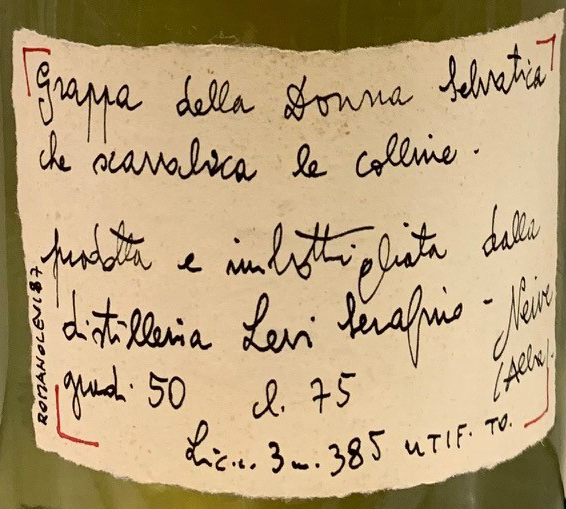 Grappa della Donna Selvatica
che scavalica le colline.
prodotta e imbottigliata dalla
distilleria Levi Serafino - Neive
(Alba).
gradi 50 cl. 75
Lic. n. 3 m. 385 UTIF. TO.
ROMANO LEVI 87